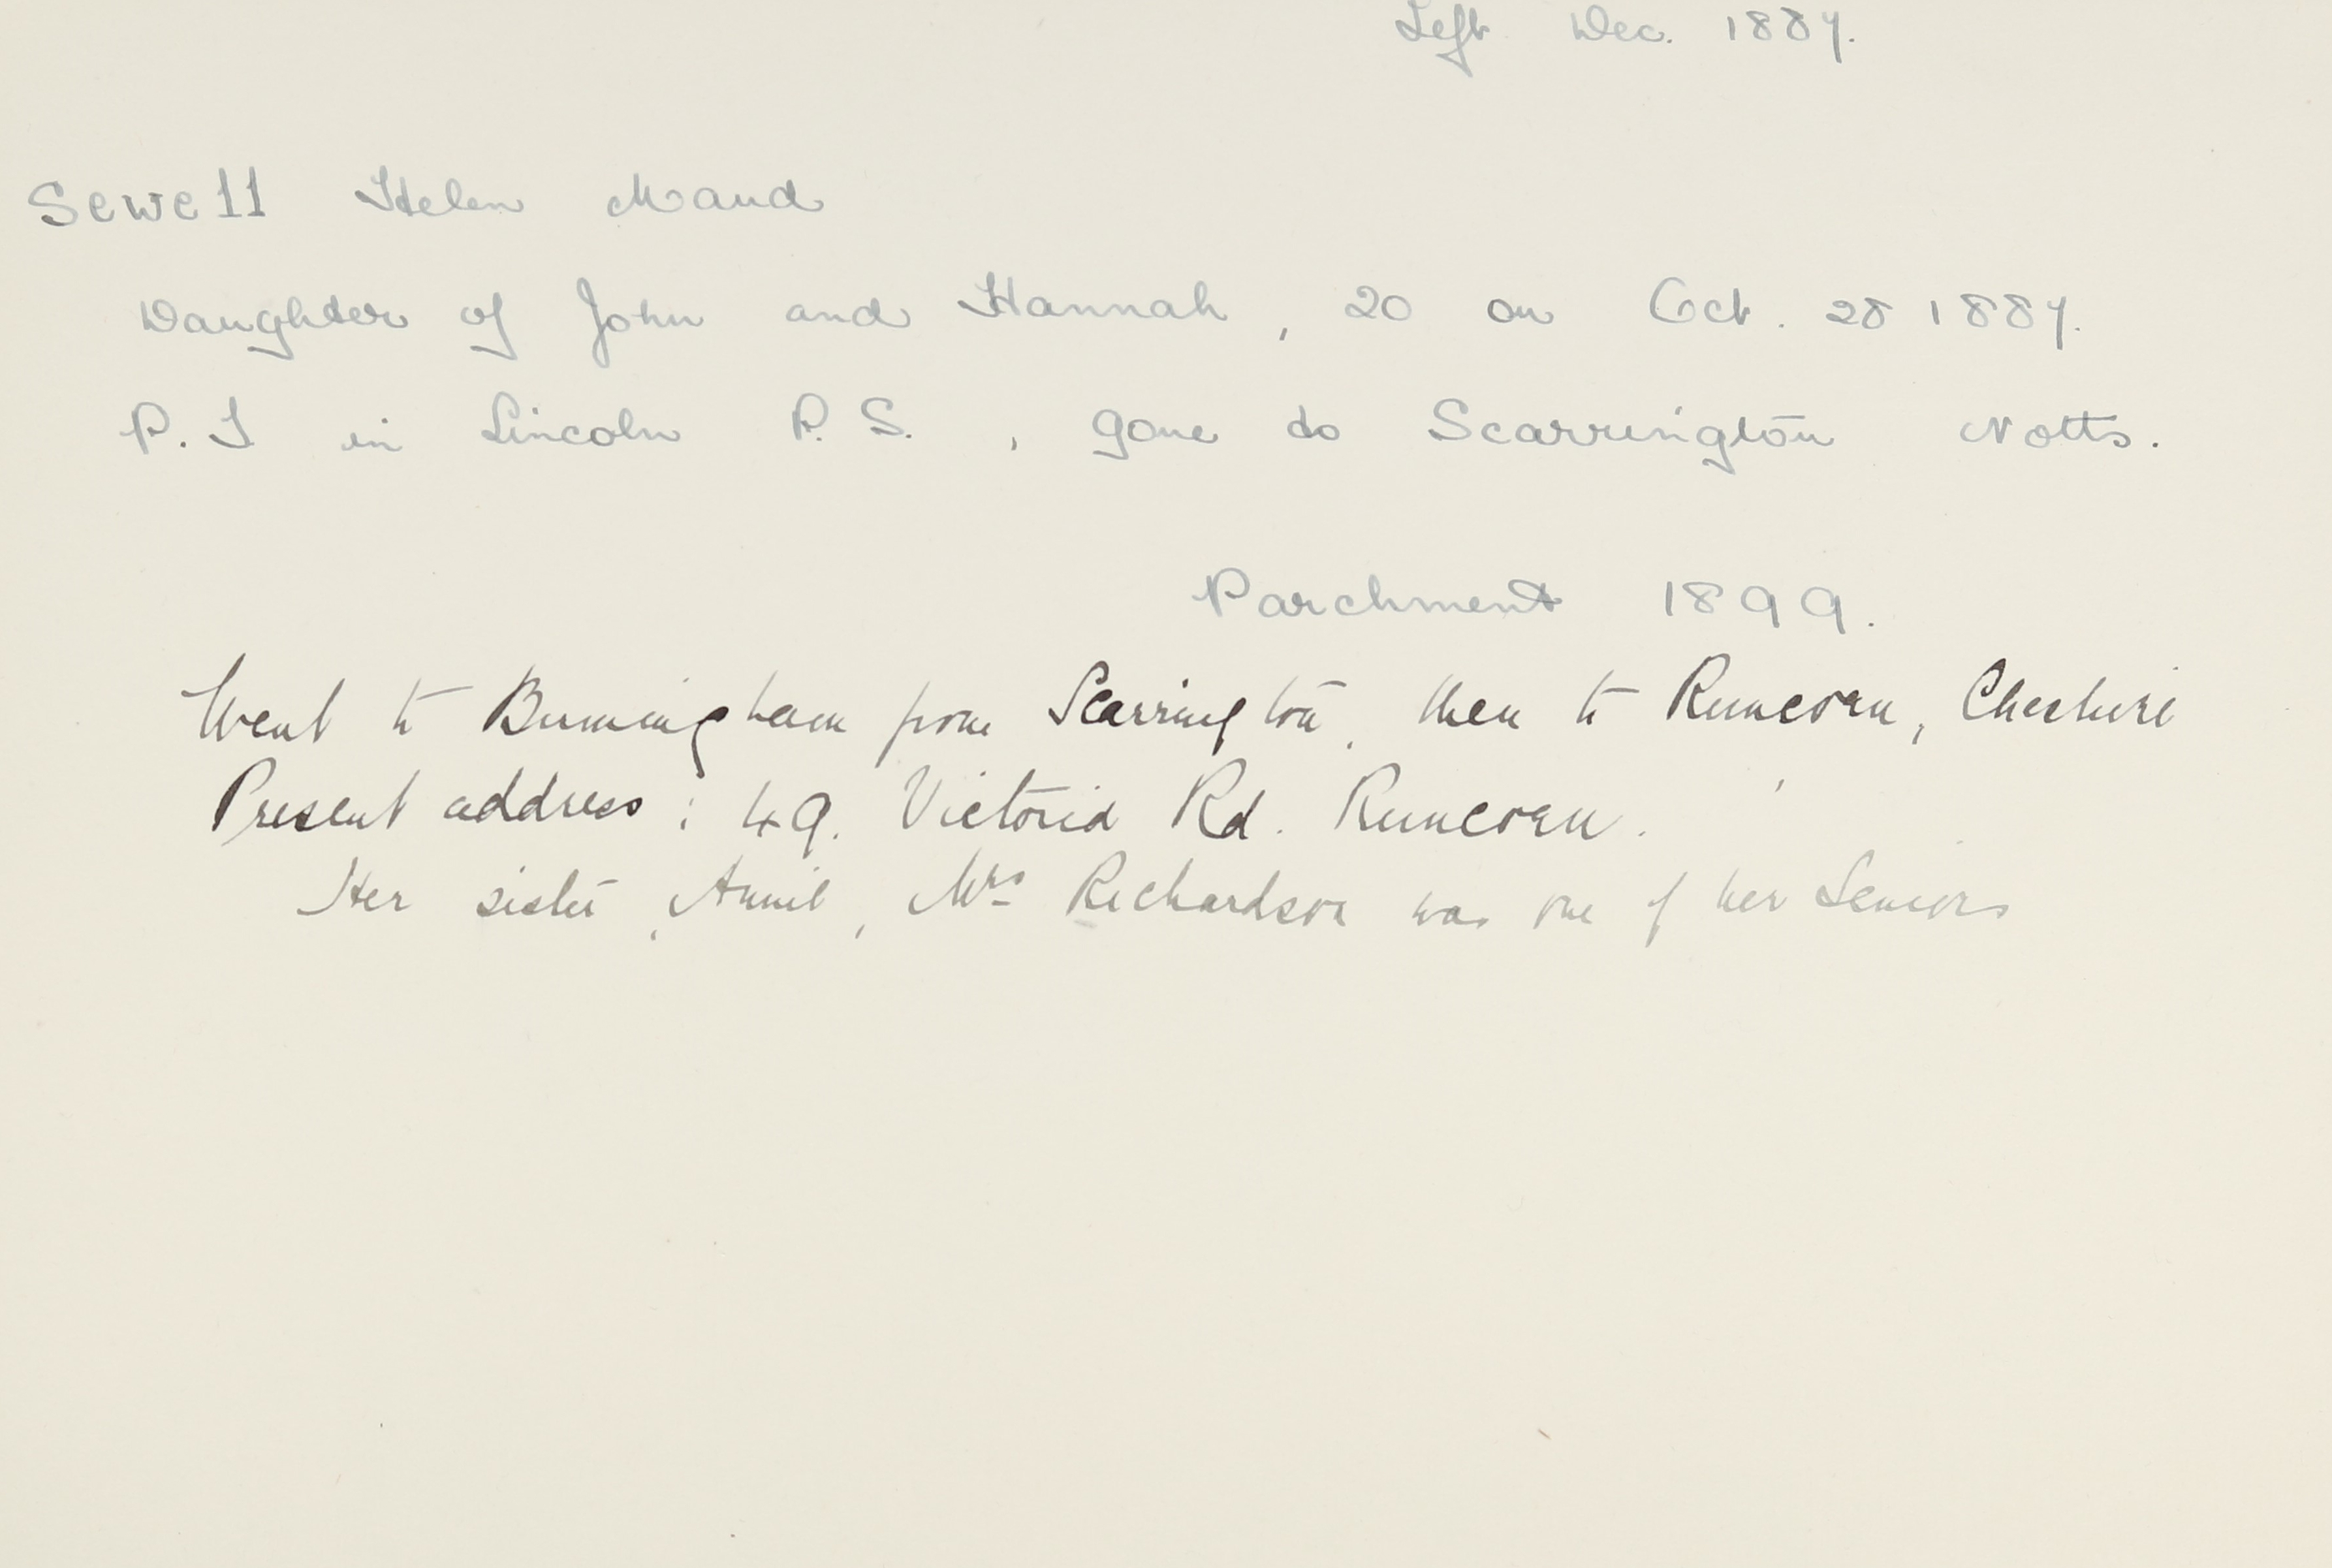 Left Dec. 1887.
Sewell Helen Maud
Daughter of John and Hannah, 20 on Oct. 28 1887.
P.T in Lincoln P.S., gone to Scarrington Notts.
Parchment 1899.
Went to Birmingham from Scarrington, then to Runcorn, Cheshire
Present address: 49. Victoria Rd. Runcorn.
Her sister, Annie, Mrs Richardson was one of her Seniors